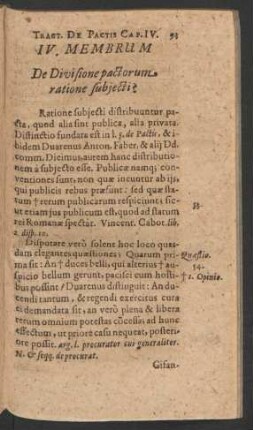 TRACT. DE PACTIS CAP. IV. 53
IV. MEMBRUM
De Divisione pactorum
ratione subjecti?
Ratione subjecti distribuuntur pa-
cta, quod alia sint publica, alia privata.
Distinctio fundata est in l. 5. de Pactis, & i-
bidem Duarenus Anton. Faber. & alij Dd.
comm. Dicimus autem hanc distributio-
nem à subjecto esse. Publicæ namq; con-
ventiones sunt, non quæ ineuntur ab ijs,
qui publicis rebus præsunt: sed quæ sta-
tum † rerum publicarum respiciunt: sic-
ut etiam jus publicum est, quod ad statum
rei Romanæ spectat. Vincent. Cabot. lib.
2. disp. 12.
53.
Disputare verò solent hoc loco quas-
dam elegantes quæstiones: Quarum pri-
ma sit: An † duces belli, qui alterius † au-
spicio bellum gerunt, pacisci cum hosti-
bus possint? Duarenus distinguit: An du-
cendi tantum, & regendi exercitus cura
ei demandata sit, an verò plena & libera
rerum omnium potestas cõcessa: ad hunc
effectum, ut priore casu nequeat, posteri-
ore possit. arg. l. procurator cui generaliter.
N. & seqq. de procurat.
Quæstio.
54.
† 1. Opinio.
Gifan-